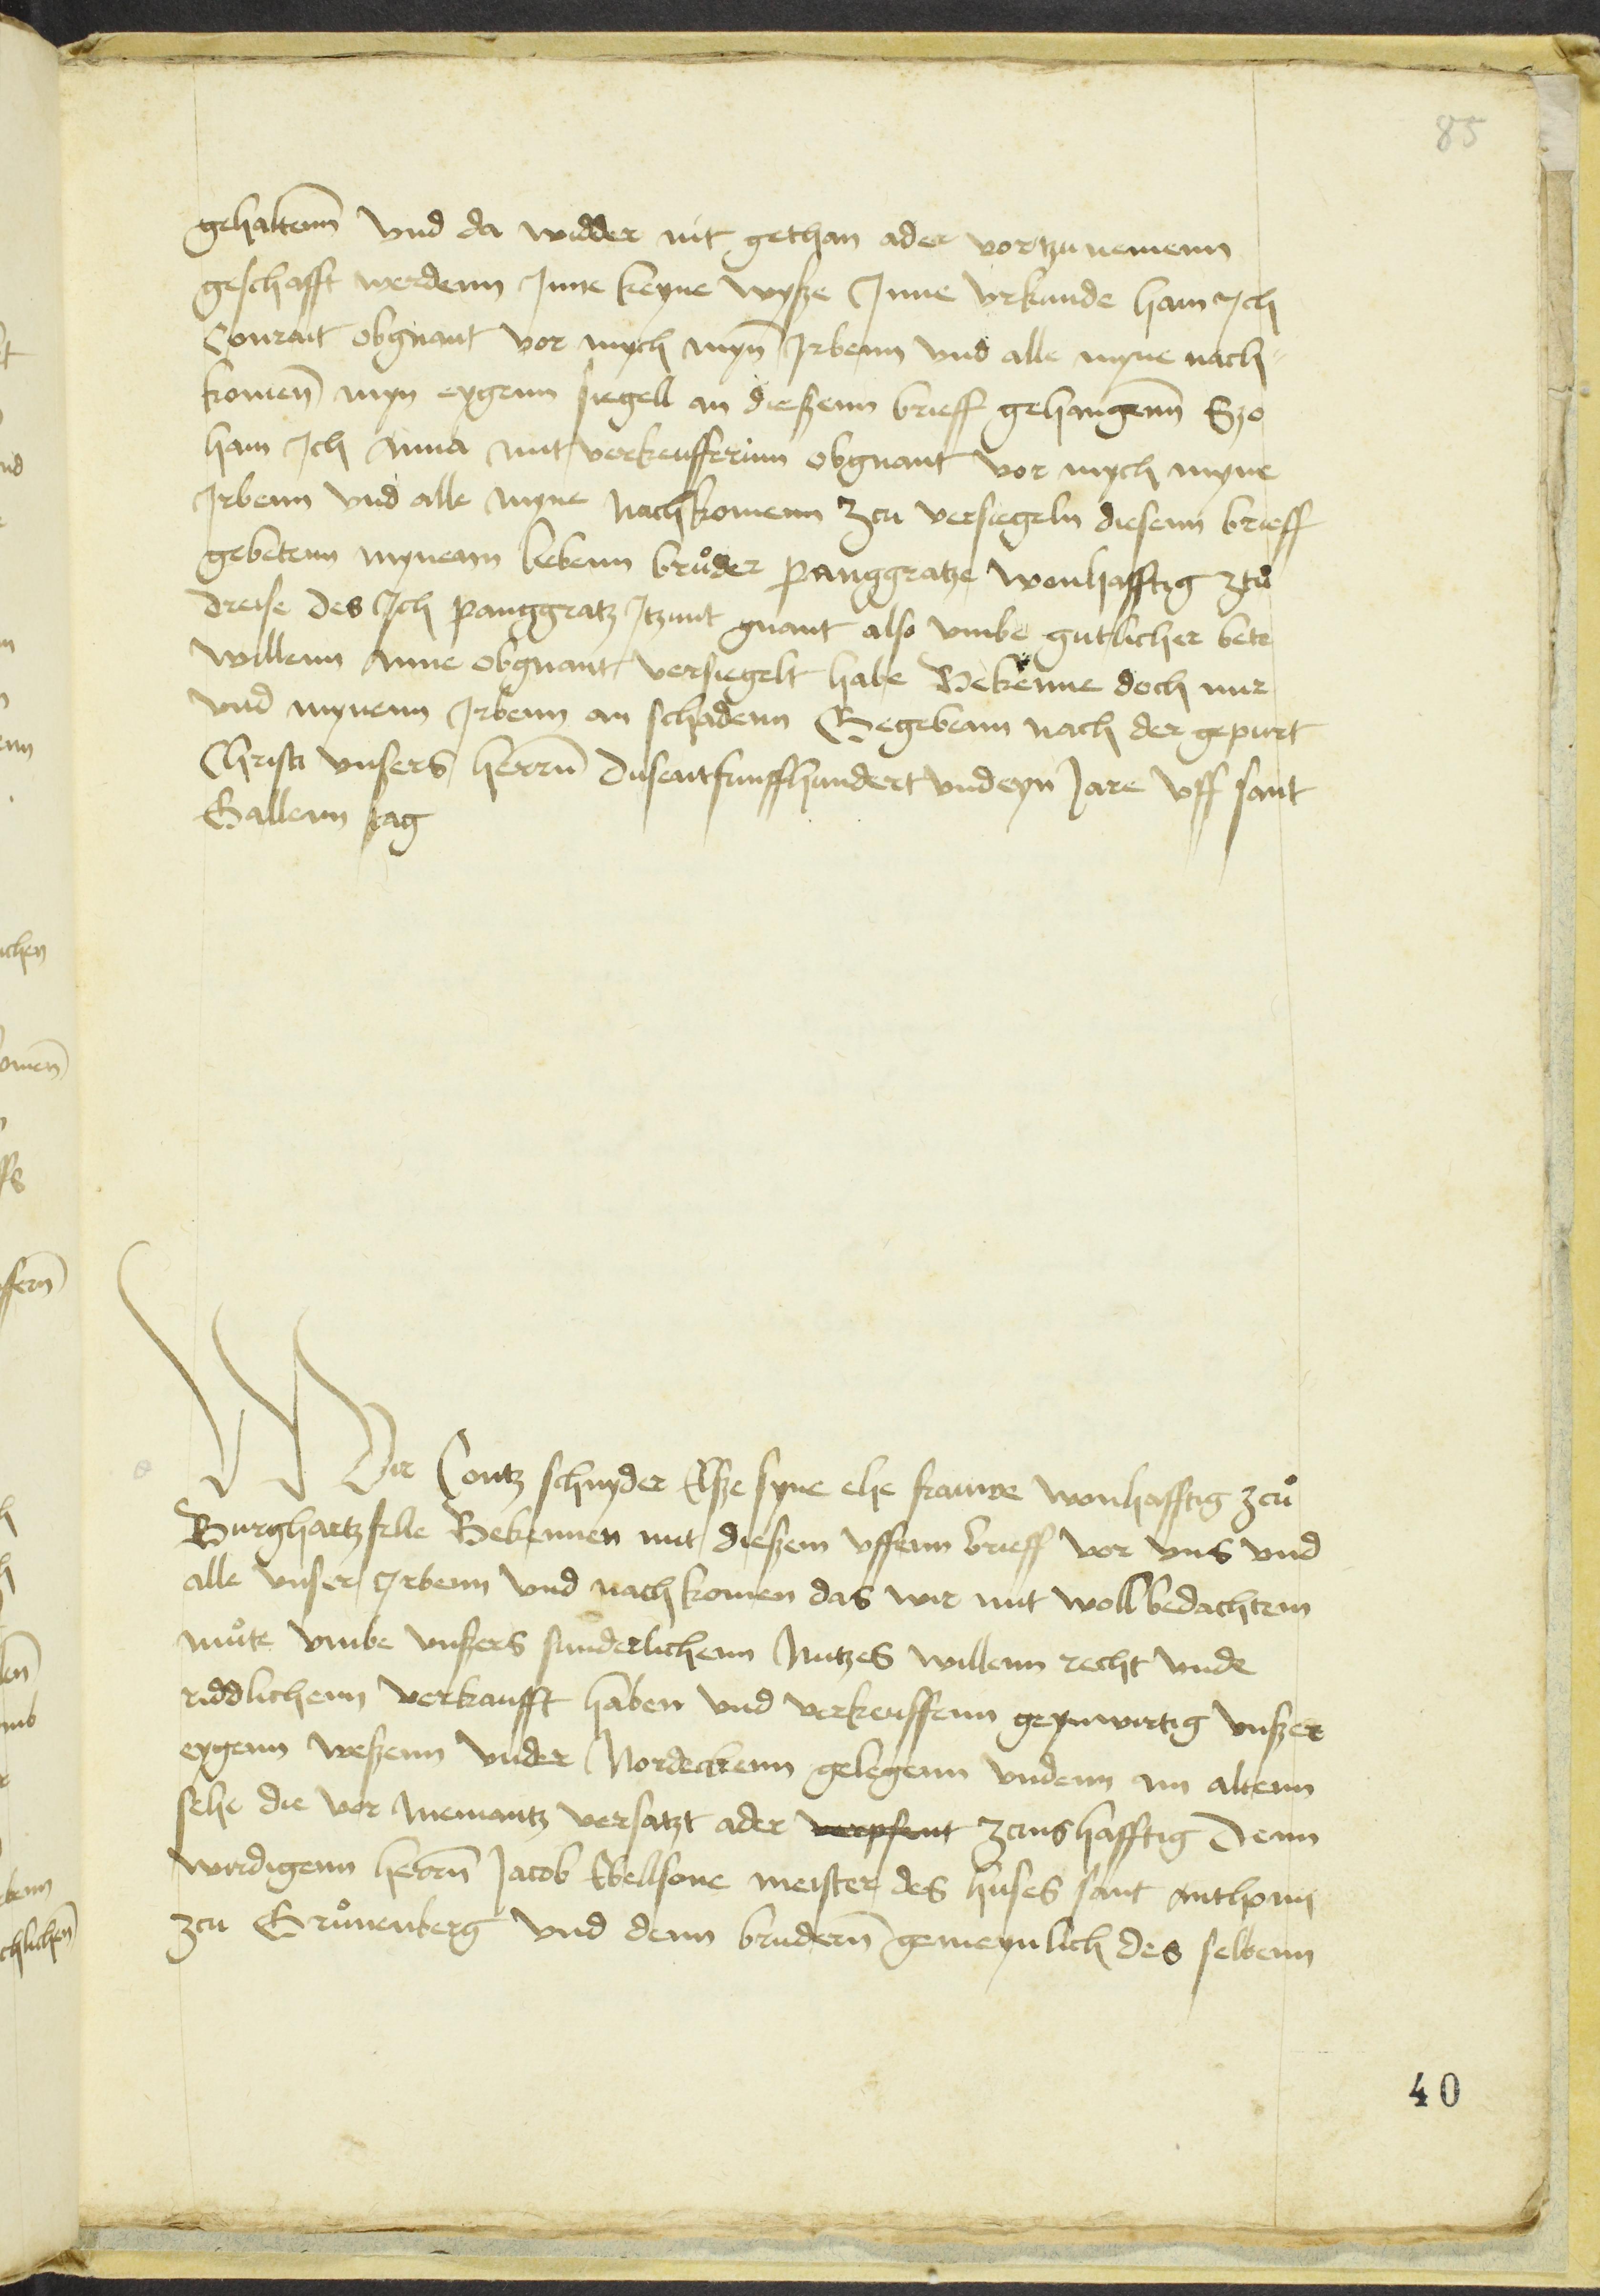 85
gehaltenn vnd da widder nit gethan ader vortzunemenn
geschafft werdenn Inne keyne wysze Inne vrkunde ham Ich
Conrait obgnant vor mych myn Irbenn vnd alle myne nach-
komen myn eygenn siegell an dieszenn brieff gehangenn Szo
ham Ich Anna mit verkeufferinn obgnant vor mych myne
Irbenn vnd alle myne nachkomenn zcu versiegeln diesenn brieff
gebetenn mynenn liebenn bruder Panggratze wonhafftig ztu
dreise des Ich Panggratz Itzunt gnant also vmbe gutlicher bete
willenn Anne obgnant versiegelt habe Bekenne doch mir
vnd mynenn Irbenn an schadenn Gegebenn nach der gepurt
Christi vnsers herrn Dusentfunffhundert vnd eyn Jare vff sant
Gallenn tag
Wir Contz schnyder Elsze syne ehe frauwe wonhafftig zcu
Burghartzfelle Bekennen mit dieszem vffenn brieff vor vns vnd
alle vnser Irbenn vnd nachkomen das wir mit wollbedachtem
mute vmbe vnszers sunderlichenn Nutzes willenn recht vnde
riddlichenn verkaufft haben vnd verkeuffenn geynwertig vnszer
eygenn weszenn vnder Nordeckenn gelegenn vndenn am altenn
sehe die vor niemantz versatzt ader verpfent zcinshafftig Denn
wirdigenn herrn Jacob Ebellsone meister des huses sant Anthonij
zcu Grunenberg vnd denn brudern gemeynlich des selbenn
40